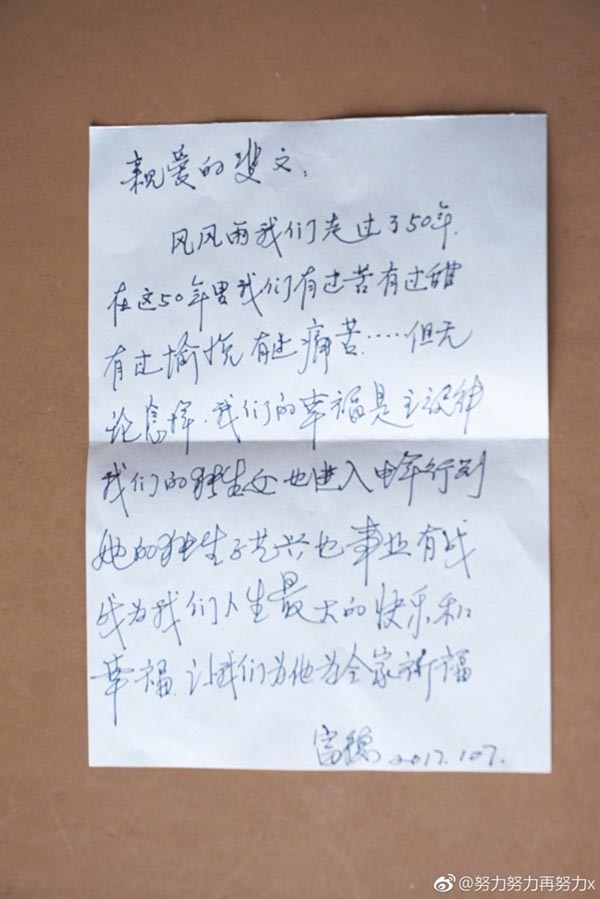 亲爱的斐文:
风风雨我们走过了50年.
在这50年里我们有过苦有过甜
有过愉悦有过痛苦……但无
论怎样.我们的幸福是主旋律
我们的独生女也进入中年行列
她的独生子艺兴也事业有成
成为我们人生最大的快乐和
幸福.让我们为他为全家祈福
富穗 2017.10.7.
@努力努力再努力x